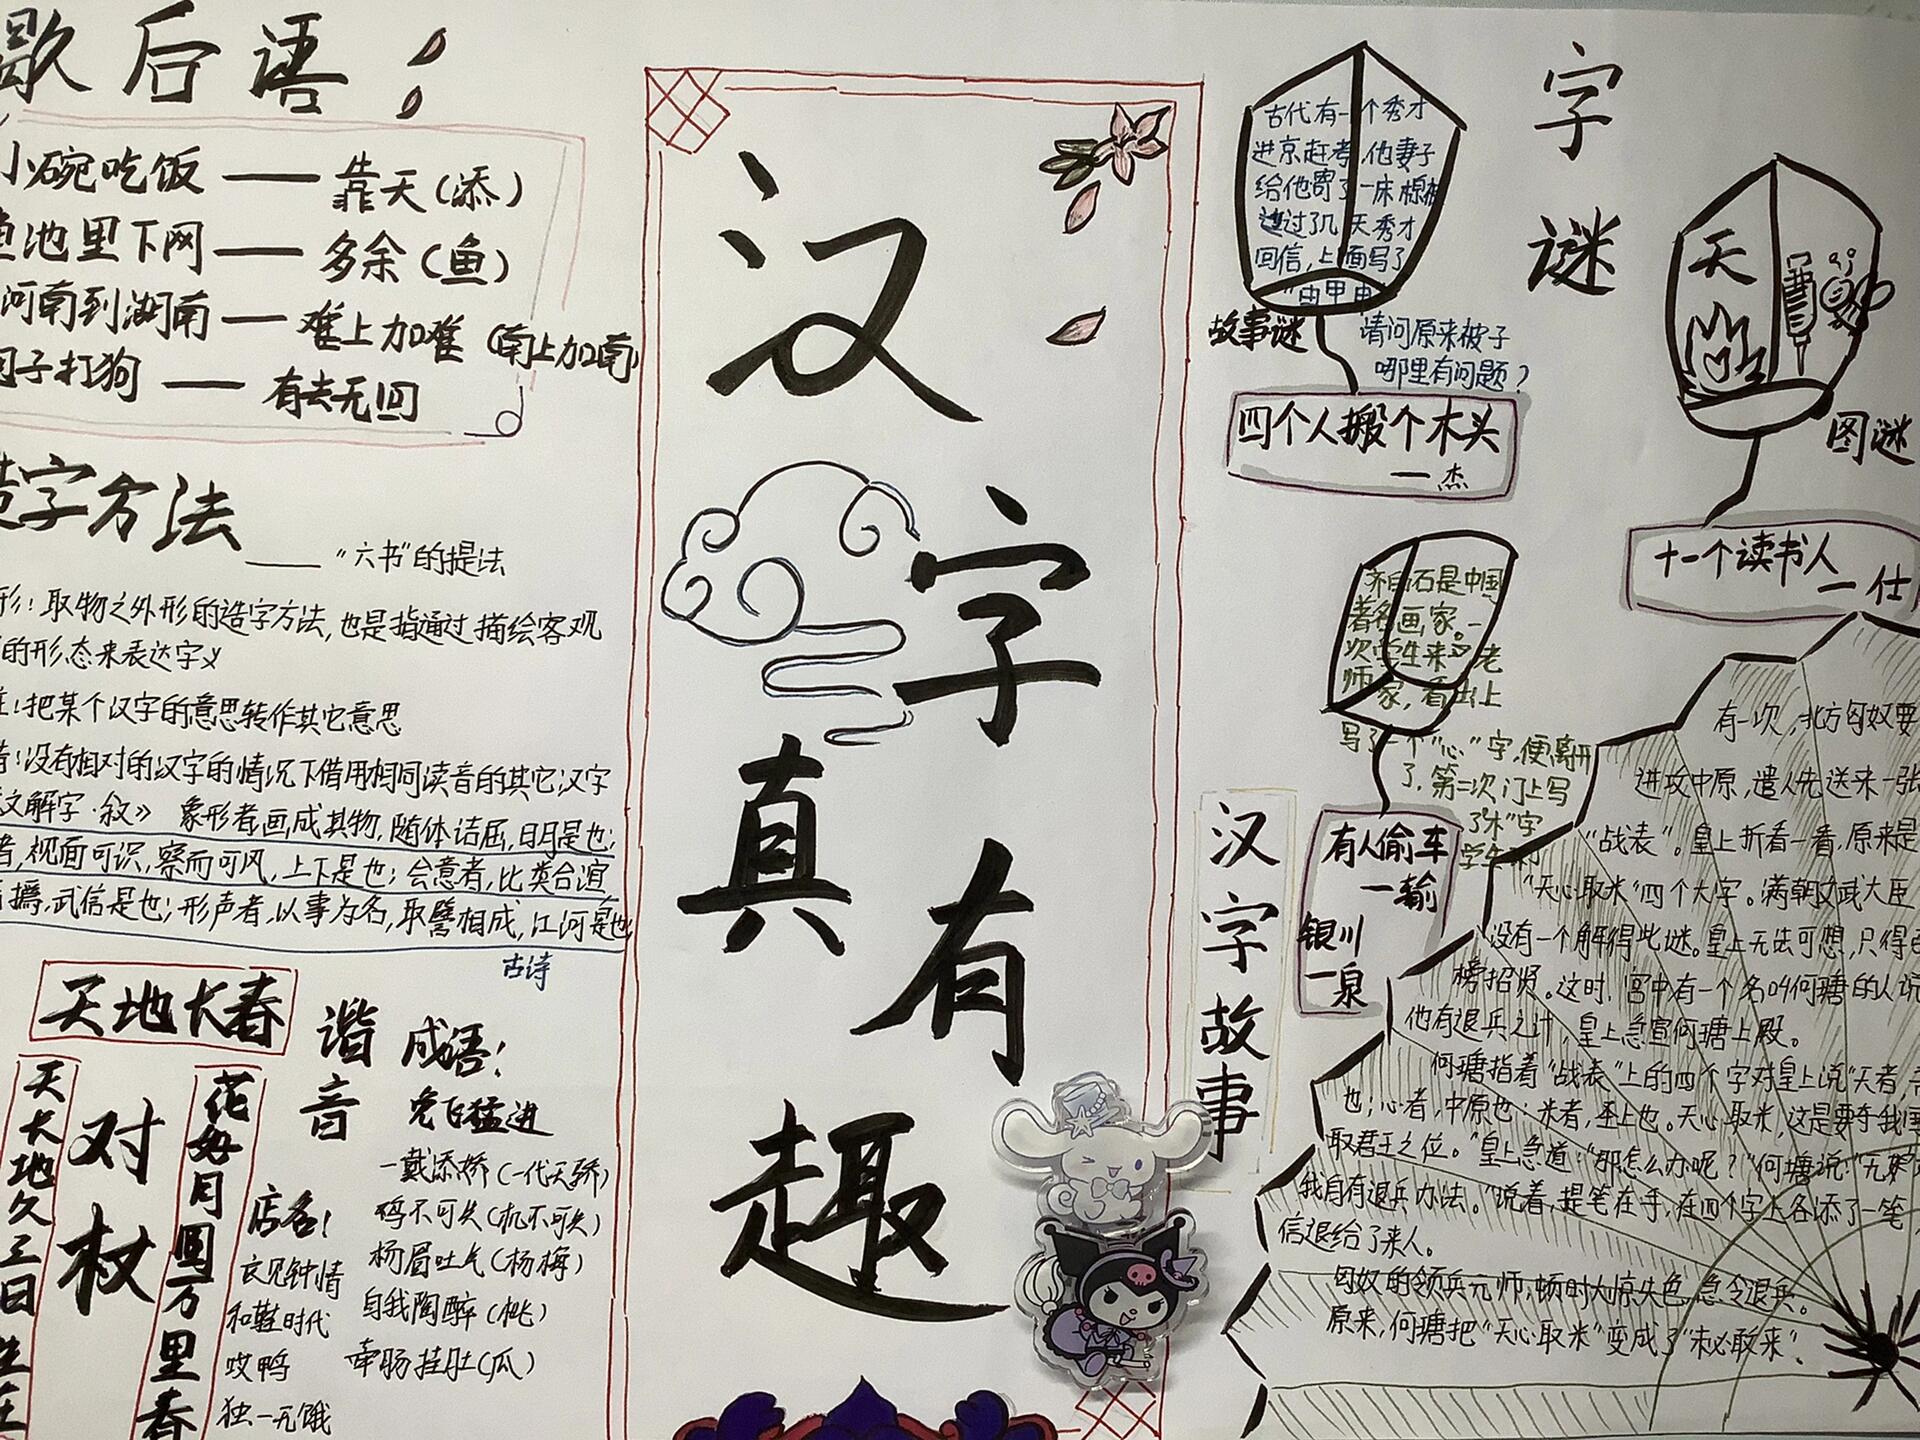 歇后语
小碗吃饭——靠天(添)
鱼池里下网——多余(鱼)
河南到湖南——难上加难(南上加南)
子打狗——有去无回
造字方法
——"六书"的提法
形：取物之外形的造字方法,也是指通过描绘客观
的形态来表达字义
注：把某个汉字的意思转作其它意思
借：没有相对的汉字的情况下借用相同读音的其它汉字
文解字·叙》 象形者画成其物,随体诘屈,日月是也;
者,视面可识,察而可风,上下是也;会意者,比类合谊
撝,武信是也;形声者,以事为名,取譬相成,江河是也
古诗
天地大春
对杖
天大地久三日
花好月圆万里春
谐音
店名：
衣见钟情
和鞋时代
哎鸭
独一无饿
成语：
兔飞猛进
一戴添娇(一代天骄)
鸡不可失(机不可失)
杨眉吐气(杨梅)
自我陶醉(桃)
牵肠挂肚(瓜)
汉字真有趣
字谜
古代有一个秀才
进京赶考,他妻子
给他寄了一床棉被
过了几天秀才
回信,上面写了
"由甲申"
请问原来被子
哪里有问题?
故事谜
四个人搬个木头
一杰
天
图谜
十一个读书人
一仕
齐白石是中国
著名画家。一
次学生来老
师家,看出上
写了一个"心"字,便离开
了,第二次门上写
了"木"字
学生
有人偷车
一输
银川
一泉
汉字故事
有一次,北方匈奴要
进攻中原,遣人先送来一张
"战表"。皇上折看一看,原来是
"天心取米"四个大字。满朝文武大臣
没有一个解得此谜。皇上无法可想,只得
榜招贤。这时,宫中有一个名叫何瑭的人说
他有退兵之计,皇上急宣何瑭上殿。
何瑭指着"战表"上的四个字对皇上说"天者,
也;心者,中原也;米者,圣上也。天心取米,这是要夺我
取君王之位。"皇上急道:"那怎么办呢?"何瑭说:"无
我自有退兵办法。"说着,提笔在手,在四个字上各添了一笔
信退给了来人。
匈奴的领兵元帅,顿时大惊失色,急令退兵。
原来,何瑭把"天心取米"变成了"未必敢来"。